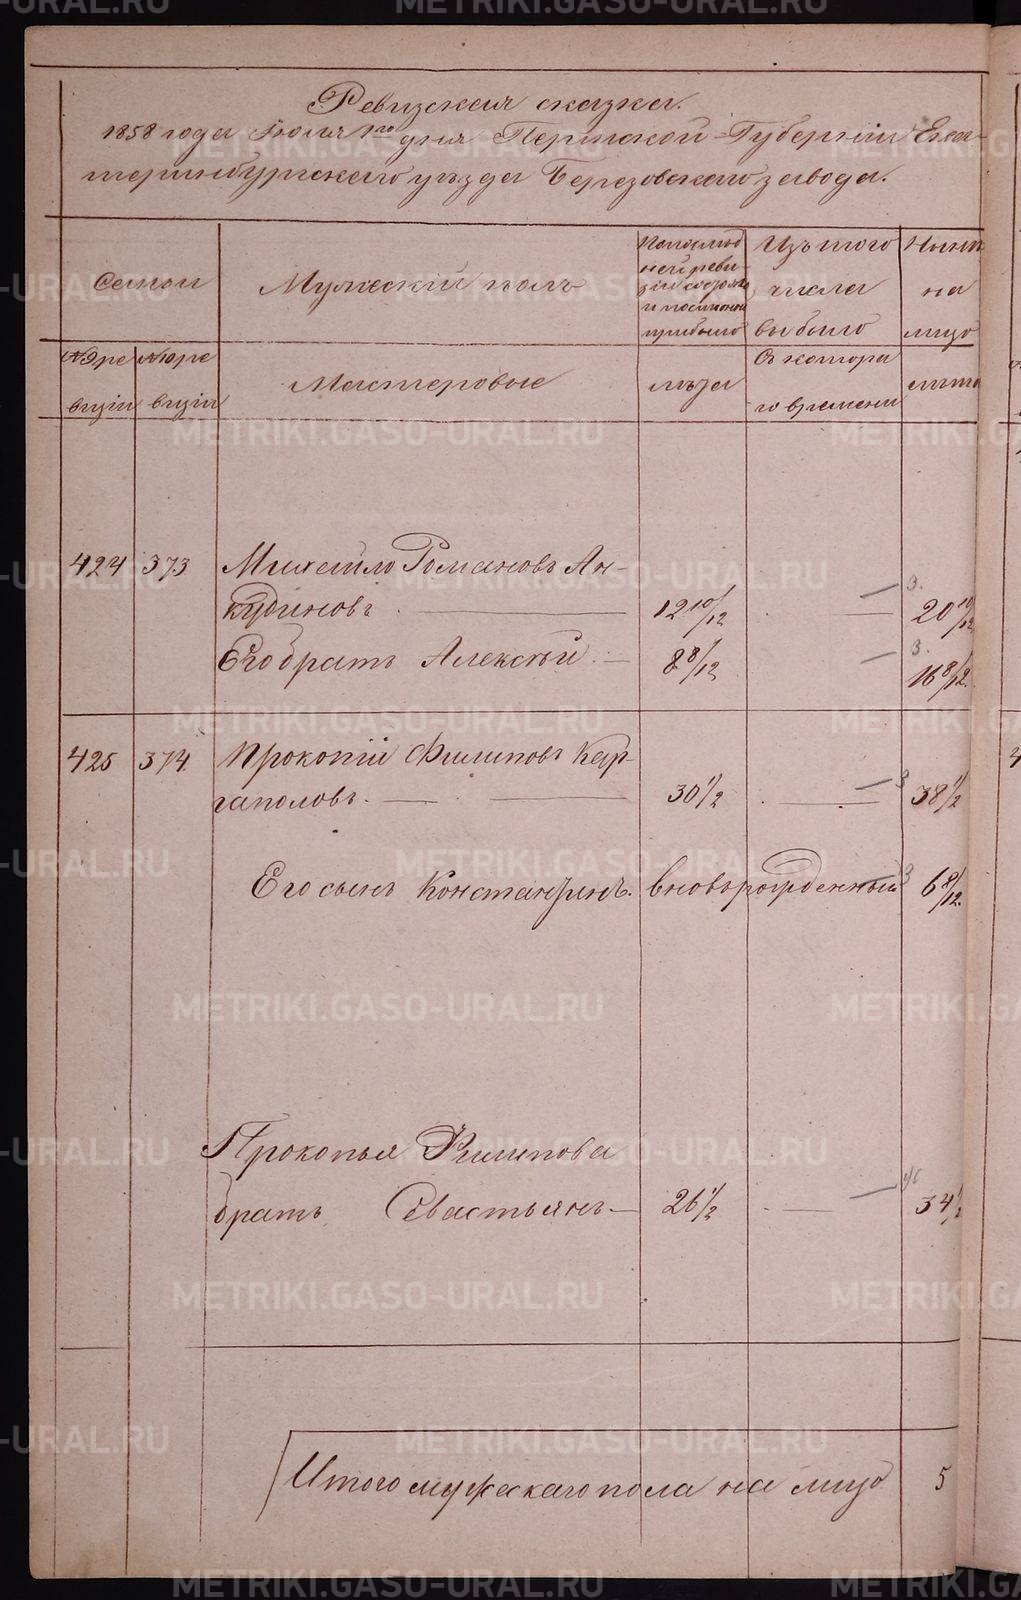 Ревизская сказка.
1858 года Июля 1го дня Пермской Губернии Ека-
теринбургскаго уѣзда Березовскаго завода.
Семьи
Мужескій полъ
По последней ревизіи состояло и после оной прибыло
Изъ того числа выбыло
Нынѣ на лицо
№ 9 ревизіи
№ 10 ревизіи
Мастеровые
лѣта
Съ котораго времени
лѣта
424 373 Михайло Романовъ Ан-
кудиновъ. 12 10/12 3. 20 10/12
Его братъ Алексѣй. 8 8/12 3. 16 8/12.
425 374. Прокопій Филиповъ Кар-
гаполовъ. 30 1/2 3 38 1/2
Его сынъ Константинъ. вновьрожденный 3 6 8/12.
Прокопья Филипова
братъ Севастьянъ 26 1/2 34 1/2
Итого мужескаго пола на лицо 5
METRIKI.GASO-URAL.RU